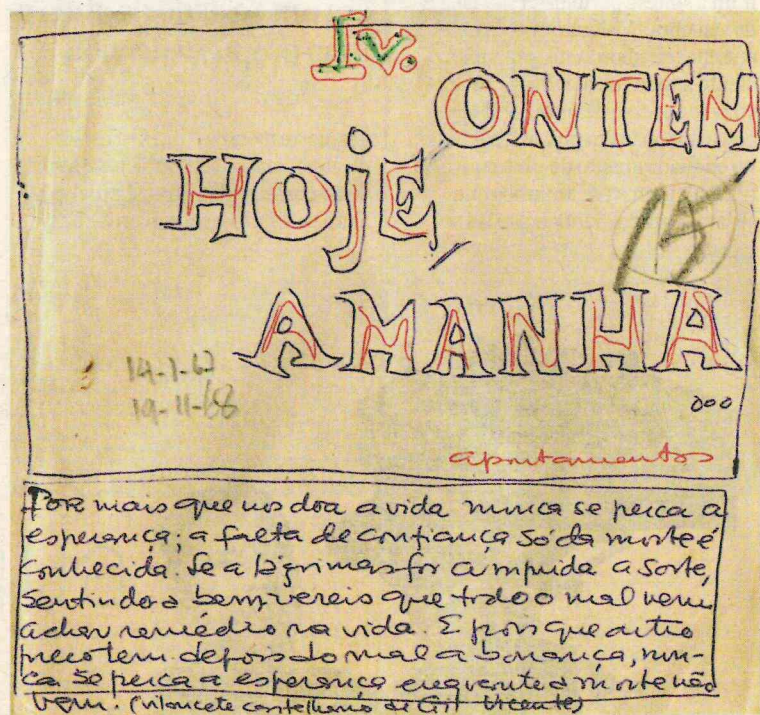 IV.
ONTEM
HOJE,
15
AMANHA
14-1-62
19-11-68
ooo
apontamentos
Por mais que nos doa a vida nunca se perca a
esperança; a falta de confiança só da morte é
conhecida. Se a lágrimas for cumprida a sorte,
sentindo a bem, vereis que todo o mal vem
achar remédio na vida. E pois que outro
preço tem depois do mal a bonança, nun-
ca se perca a esperança enquanto a morte não
vem. (vilancete castelhano de Gil Vicente)